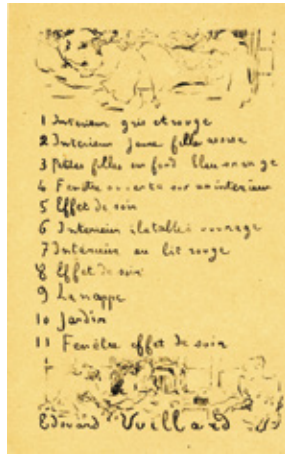 1 Interieur gris et rouge
2 Interieur jeune fille assise
3 filles en fond bleu orange
4 Fenêtre ouverte sur un interieur
5 Effet de soir
6 Interieur
7 Interieur au lit rouge
8 Effet de soir
9 La nappe
10 Jardin
11 Fenêtre effet de soir
Edouard Vuillard